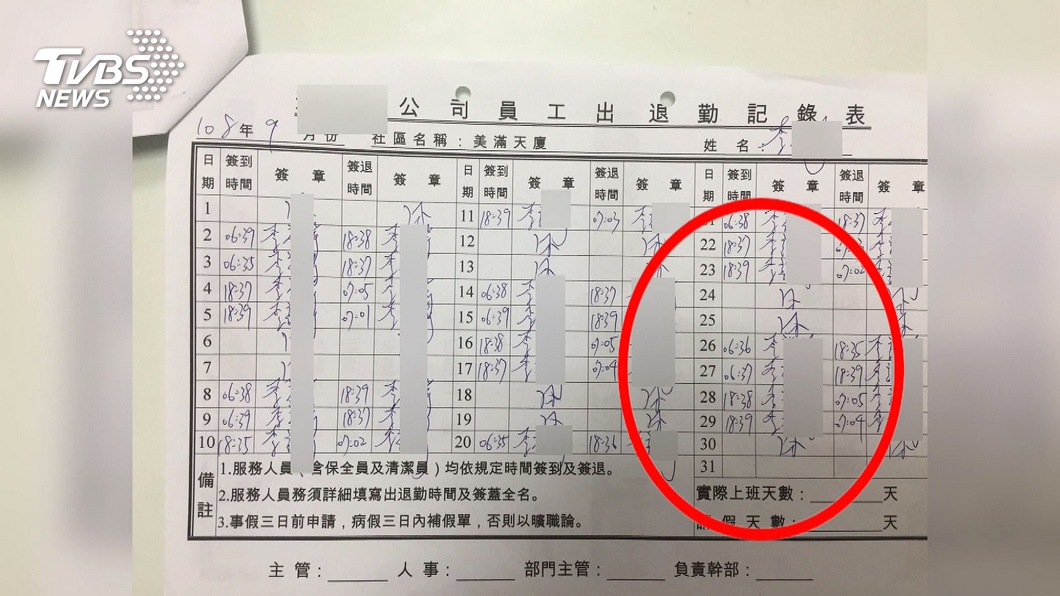 TVBS
NEWS
公司員工出退勤記錄表
108年 9月份 社區名稱：美滿天廈 姓名：李
日期 簽到時間 簽章 簽退時間 簽章 日期 簽到時間 簽章 簽退時間 簽章 日期 簽到時間 簽章 簽退時間 簽章
1 休 11 18:39 李 07:03 李 21 06:38 李 18:37 李
2 06:39 李 18:38 李 12 休 休 22 18:37 李
3 06:35 李 18:37 李 13 休 休 23 18:39 李 07:02
4 18:37 李 07:05 李 14 06:38 李 18:37 24 休 休
5 18:39 李 07:01 李 15 06:39 李 18:39 25 休 休
6 16 18:38 李 07:05 26 06:36 李 18:35 李
7 17 18:37 李 07:04 27 06:37 李 18:39 李
8 06:38 李 18:39 李 18 休 休 28 18:38 李 07:05 李
9 06:39 李 18:37 李 19 休 休 29 18:39 李 07:04 李
10 18:35 李 07:02 李 20 06:35 李 18:36 李 30 休 休
31
備註
1.服務人員（含保全員及清潔員）均依規定時間簽到及簽退。
2.服務人員務須詳細填寫出退勤時間及簽蓋全名。
3.事假三日前申請，病假三日內補假單，否則以曠職論。
實際上班天數：天
假天數：天
主管： 人事： 部門主管： 負責幹部：